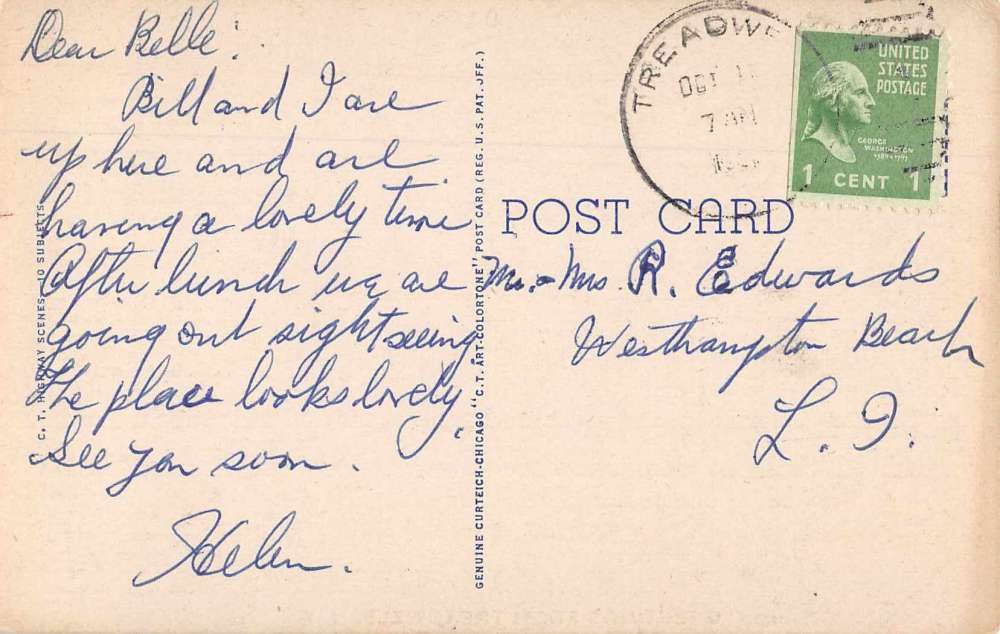 Dear Belle:
Bill and I are
up here and are
having a lovely time
After lunch we are
going out sightseeing.
The place looks lovely.
See you soon.
Helen.
C. T. HIGHWAY SCENES—NIC SUBJECTS
GENUINE CURTEICH-CHICAGO "C. T. ART-COLORTONE" POST CARD (REG. U. S. PAT. OFF.)
TREADWE
OCT
7 AM
UNITED
STATES
POSTAGE
GEORGE
WASHINGTON
1789-1797
1 CENT 1
POST CARD
Mr. & Mrs. R. Edwards
Westhampton Beach
L. I.